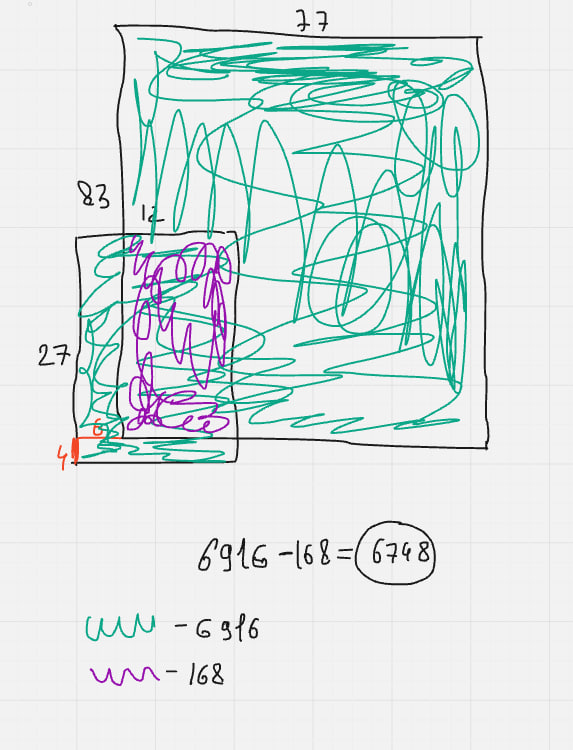 77
83
12
27
6
4
6916-168=6748
- 6916
- 168